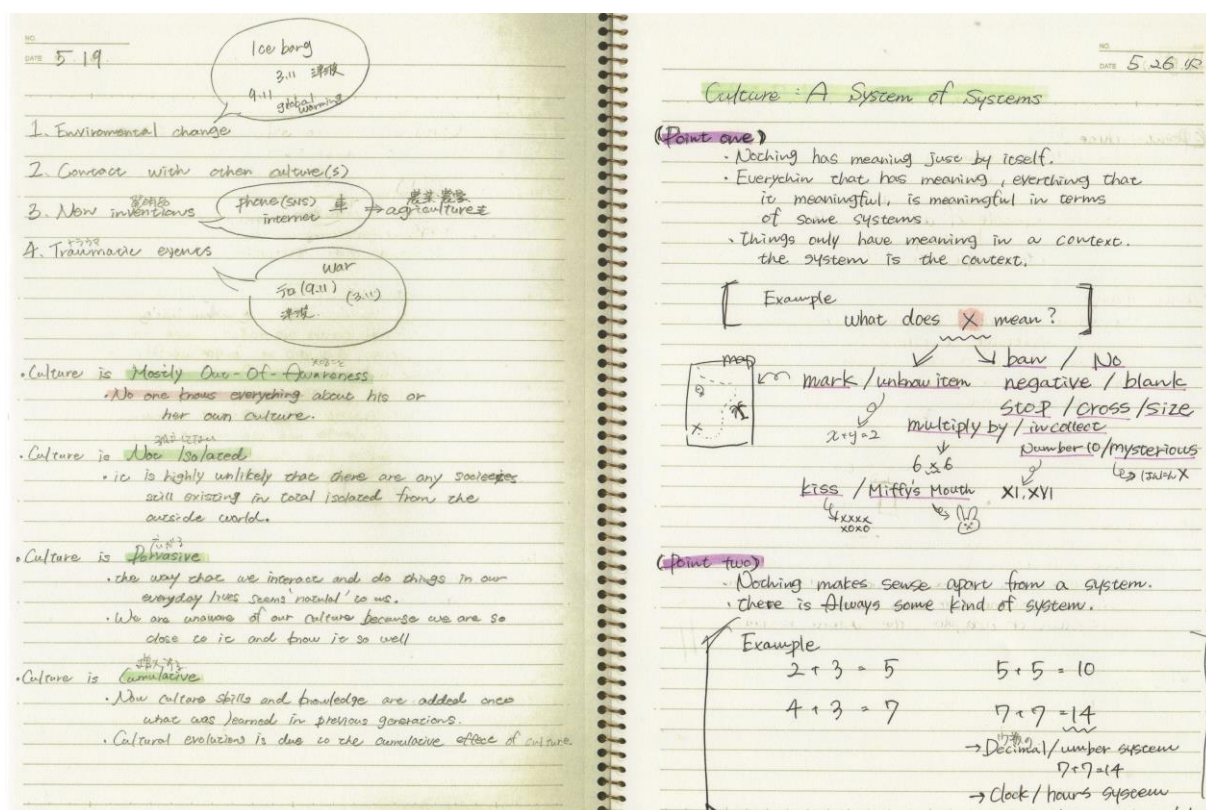 NO.
DATE 5 19
Ice berg
3.11 津波
9.11
global warming
1. Enviromental change
2. Contact with other culture(s)
3. New inventions
phone (SNS) 車
internet
→ agriculture
農業
トラウマ
4. Traumatic events
war
テロ (9.11) (3.11)
津波
・Culture is Mostly Out-Of-Awareness
・No one knows everything about his or
her own culture.
・Culture is Not Isolated
・it is highly unlikely that there are any societies
still existing in total isolated from the
outside world.
・Culture is Pervasive
・the way that we interact and do things in our
everyday lives seems 'natural' to us.
・We are unaware of our culture because we are so
close to it and know it so well
・Culture is Cumulative
・New culture skills and knowledge are added onto
what was learned in previous generations.
・Cultural evolution is due to the cumulative effect of culture
NO.
DATE 5 26
Culture : A System of Systems
(Point one)
・Nothing has meaning just by itself.
・Everythin that has meaning, everthing that
it meaningful, is meaningful in terms
of some systems.
・Things only have meaning in a context.
the system is the context.
Example
what does X mean?
map
mark / unknow item
ban / No
negative / blank
stop / cross / size
x+y=2
multiply by / incollect
Number 10 / mysterious
6 x 6
XI, XVI
kiss / Miffy's Mouth
xxxx
xoxo
(Point two)
・Nothing makes sense apart from a system.
・there is Always some kind of system.
Example
2 + 3 = 5 5 + 5 = 10
4 + 3 = 7 7 + 7 = 14
→ Decimal / number system
7+7=14
→ Clock / hours system